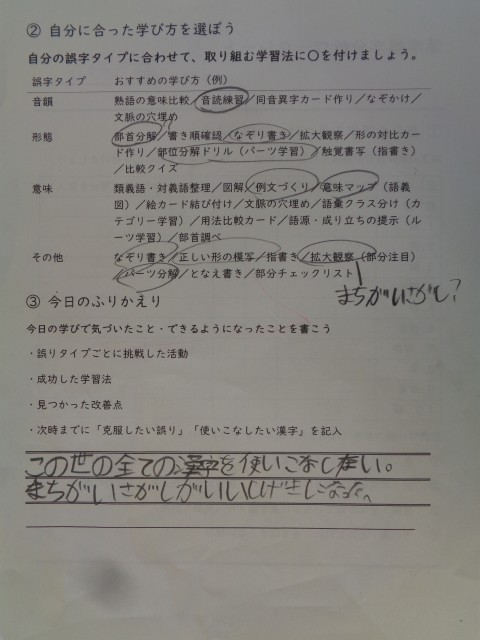 ② 自分に合った学び方を選ぼう
自分の誤字タイプに合わせて、取り組む学習法に〇を付けましょう。
誤字タイプ おすすめの学び方（例）
音韻 熟語の意味比較／音読練習／同音異字カード作り／なぞかけ／
文脈の穴埋め
形態 部首分解／書き順確認／なぞり書き／拡大観察／形の対比カ
ード作り／部位分解ドリル（パーツ学習）／触覚書写（指書き）
／比較クイズ
意味 類義語・対義語整理／図解／例文づくり／意味マップ（語義
図）／絵カード結び付け／文脈の穴埋め／語彙クラス分け（カ
テゴリー学習）／用法比較カード／語源・成り立ちの提示（ル
ーツ学習）／部首調べ
その他 なぞり書き／正しい形の模写／指書き／拡大観察（部分注目）
／パーツ分解／となえ書き／部分チェックリスト
まちがいさがし?
③ 今日のふりかえり
今日の学びで気づいたこと・できるようになったことを書こう
・誤りタイプごとに挑戦した活動
・成功した学習法
・見つかった改善点
・次時までに「克服したい誤り」「使いこなしたい漢字」を記入
この世の全ての漢字を使いこなしたい。
まちがいさがしがいいしげきになった。